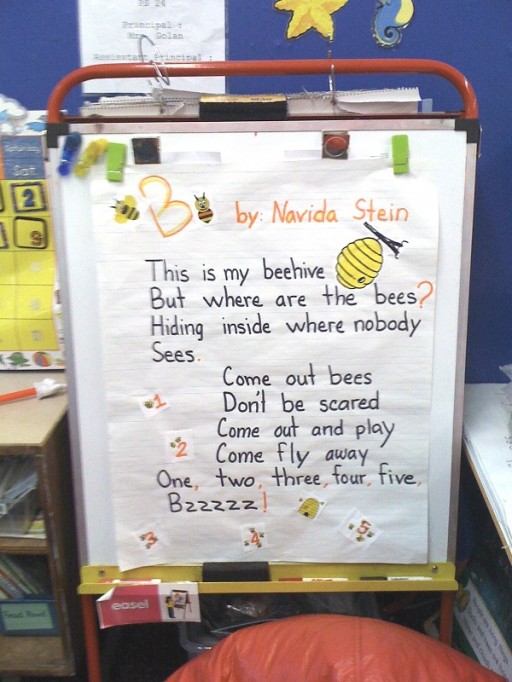 PS 24
Principal:
Mrs. Golan
Assistant Principal:
Saturday
Sat
2
9
B by: Navida Stein
This is my beehive
But where are the bees?
Hiding inside where nobody
Sees.
Come out bees
1
Don't be scared
Come out and play
2
Come fly away
One, two, three, four, five,
Bzzzzz!
3
4
5
easel
Read